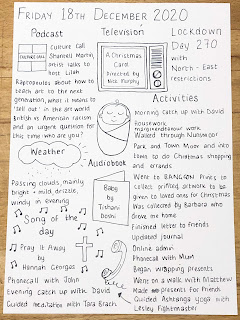 FRIDAY 18TH DECEMBER 2020
Podcast
CULTURE CALL
Culture Call
Shantell Martin,
artist talks to
host Lilah
Raptopoulos about how to
teach art to the next
generation, what it means to
'sell out' in the art world
British vs American racism
and an urgent question for
this time who are you?
Television
A Christmas
Carol
Directed by
Nick Murphy
Lockdown
Day 270
with
North-East
restrictions.
Activities
Morning catch up with David
Housework
Walked through Nunsmoor
Park and Town Moor and into
town to do Christmas shopping
and errands
Went to BANGON Prints to
collect printed artwork to be
given to loved ones for Christmas
Was collected by Barbara who
drove me home
Finished letter to friends
Updated journal
Online admin
Phonecall with Mum
Began wrapping presents
Went on a walk with Matthew
Made presents for friends
Guided Ashtanga yoga with
Lesley Fightmaster
Weather
Passing clouds, mainly
bright - mild, drizzle,
windy in evening
Audiobook
Baby
by
Tishani
Doshi
Song of the
day
Pray It Away
by
Hannah Georgas
Phonecall with John
Evening catch up with David
Guided meditation with Tara Brach